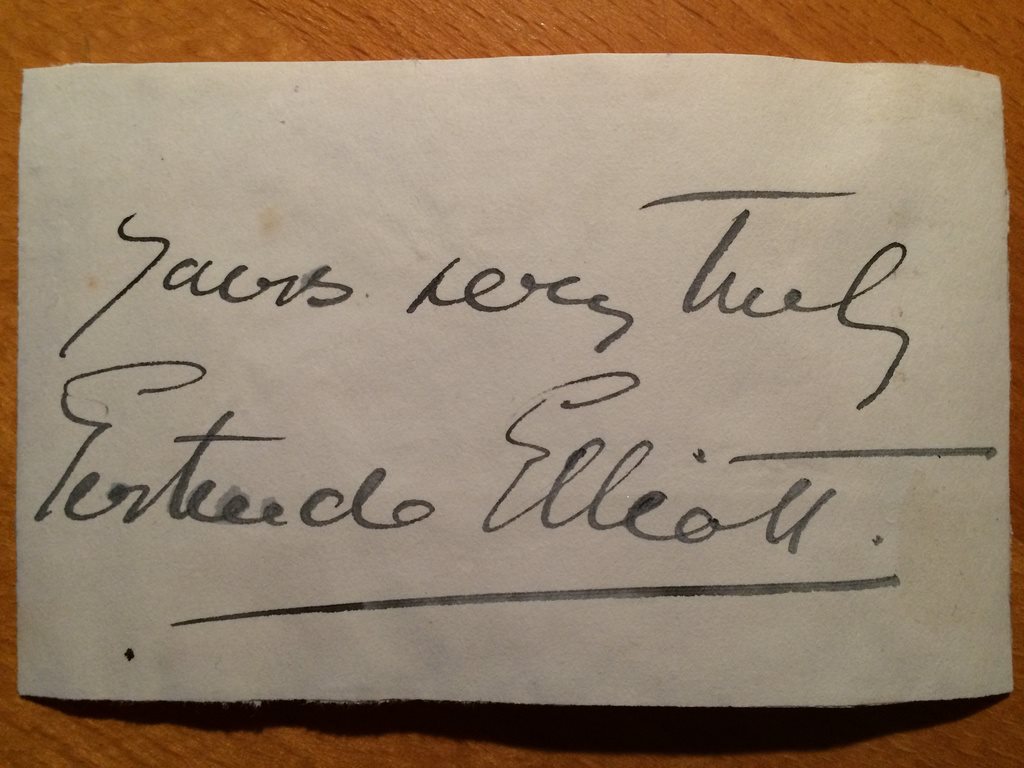 Yours very Truly
Gertrude Elliott.